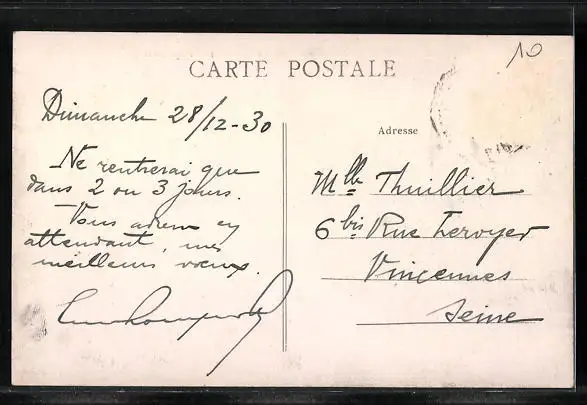 10
CARTE POSTALE
Dimanche 28/12-30
Adresse
Ne rentrerai que
dans 2 ou 3 jours.
Vous adresse en
attendant, mes
meilleurs vœux.
Mlle Thuillier
6 bis Rue Leroyer
Vincennes
Seine